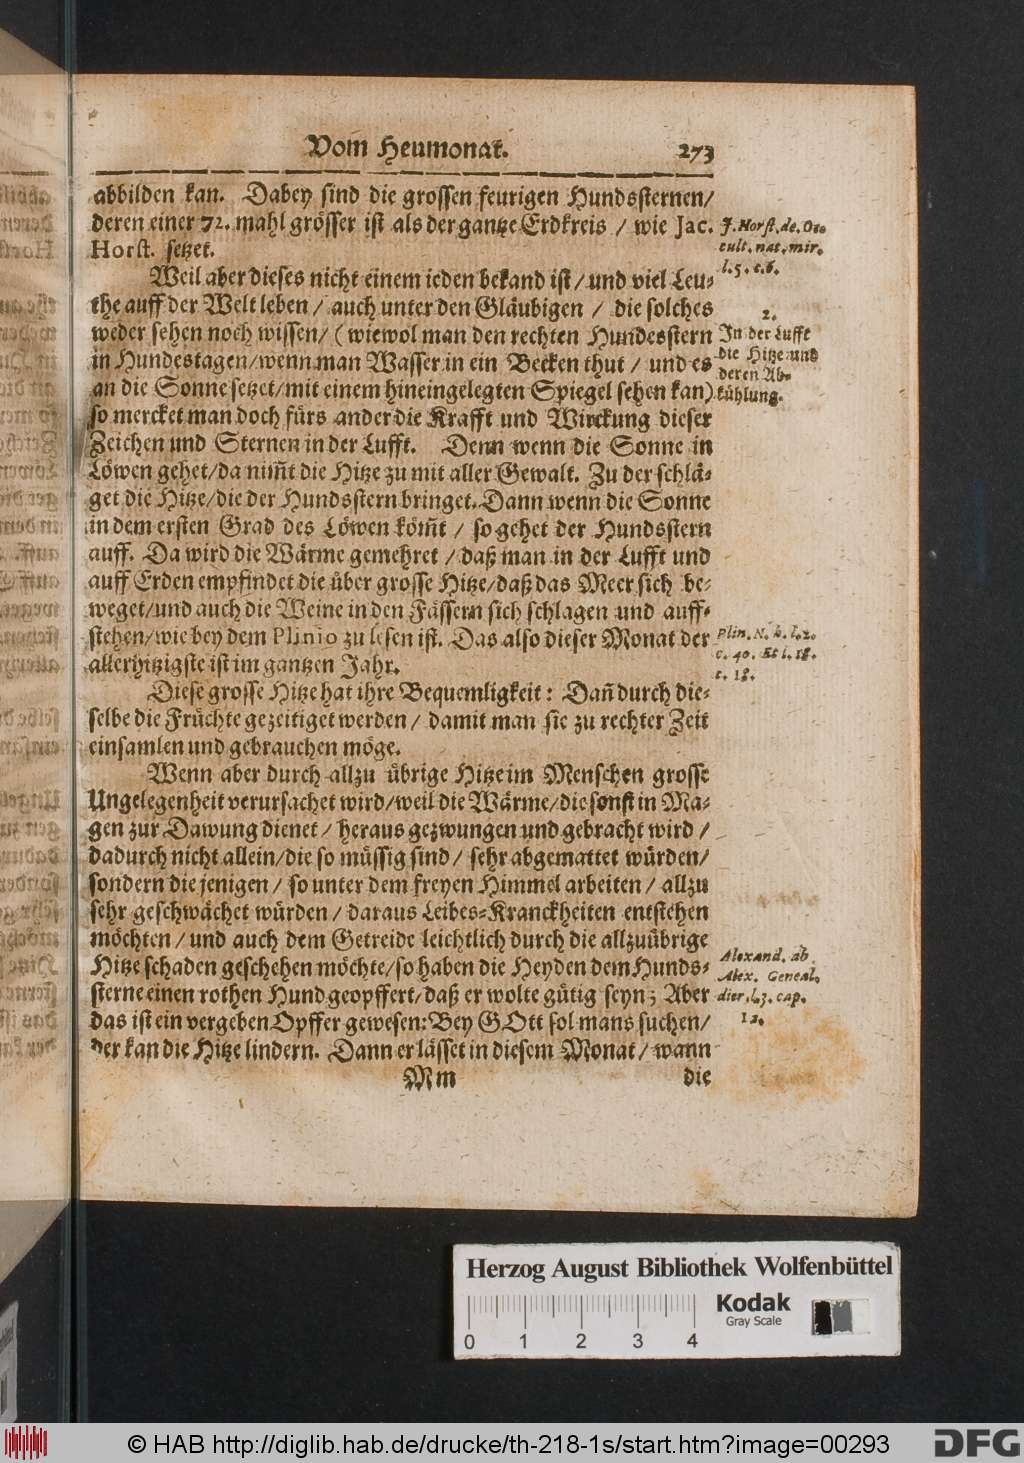 Vom Heumonat. 273
abbilden kan. Dabey sind die grossen feurigen Hundssternen/
deren einer 72. mahl grösser ist als der gantze Erdkreis / wie Jac.
Horst. setzet.
J. Horst. de. Oc-
cult. nat. mir.
l. 5. c. 6.
Weil aber dieses nicht einem ieden bekand ist / und viel Leu-
the auff der Welt leben / auch unter den Gläubigen / die solches
weder sehen noch wissen/ ( wiewol man den rechten Hundesstern
in Hundestagen/wenn man Wasser in ein Becken thut / und es
an die Sonne setzet/mit einem hineingelegten Spiegel sehen kan)
so mercket man doch fürs ander die Krafft und Wirckung dieser
Zeichen und Sternen in der Lufft. Denn wenn die Sonne in
Löwen gehet/da nim̃t die Hitze zu mit aller Gewalt. Zu der schlä-
get die Hitze/die der Hundsstern bringet. Dann wenn die Sonne
in dem ersten Grad des Löwen köm̃t / so gehet der Hundsstern
auff. Da wird die Wärme gemehret / daß man in der Lufft und
auff Erden empfindet die über grosse Hitze/daß das Meer sich be-
weget/und auch die Weine in den Fässern sich schlagen und auff-
stehen/wie bey dem Plinio zu lesen ist. Das also dieser Monat der
allerhitzigste ist im gantzen Jahr.
2.
In der Lufft
die Hitze und
deren Ab-
kühlung.
Plin. N. h. l. 2.
c. 40. Et l. 18.
c. 18.
Diese grosse Hitze hat ihre Bequemligkeit: Dañ durch die-
selbe die Früchte gezeitiget werden / damit man sie zu rechter Zeit
einsamlen und gebrauchen möge.
Wenn aber durch allzu übrige Hitze im Menschen grosse
Ungelegenheit verursachet wird/weil die Wärme/die sonst in Ma-
gen zur Dawung dienet / heraus gezwungen und gebracht wird /
dadurch nicht allein/die so müssig sind / sehr abgemattet würden/
sondern die jenigen / so unter dem freyen Himmel arbeiten / allzu
sehr geschwächet würden / daraus Leibes-Kranckheiten entstehen
möchten / und auch dem Getreide leichtlich durch die allzuübrige
Hitze schaden geschehen möchte/so haben die Heyden dem Hunds-
sterne einen rothen Hund geopffert/daß er wolte gütig seyn; Aber
das ist ein vergeben Opffer gewesen: Bey GOtt sol mans suchen/
der kan die Hitze lindern. Dann er lässet in diesem Monat / wann
Alexand. ab
Alex. Geneal.
dier. l. 3. cap.
12.
Mm die
Herzog August Bibliothek Wolfenbüttel
Kodak
Gray Scale
0 1 2 3 4
© HAB http://diglib.hab.de/drucke/th-218-1s/start.htm?image=00293
DFG